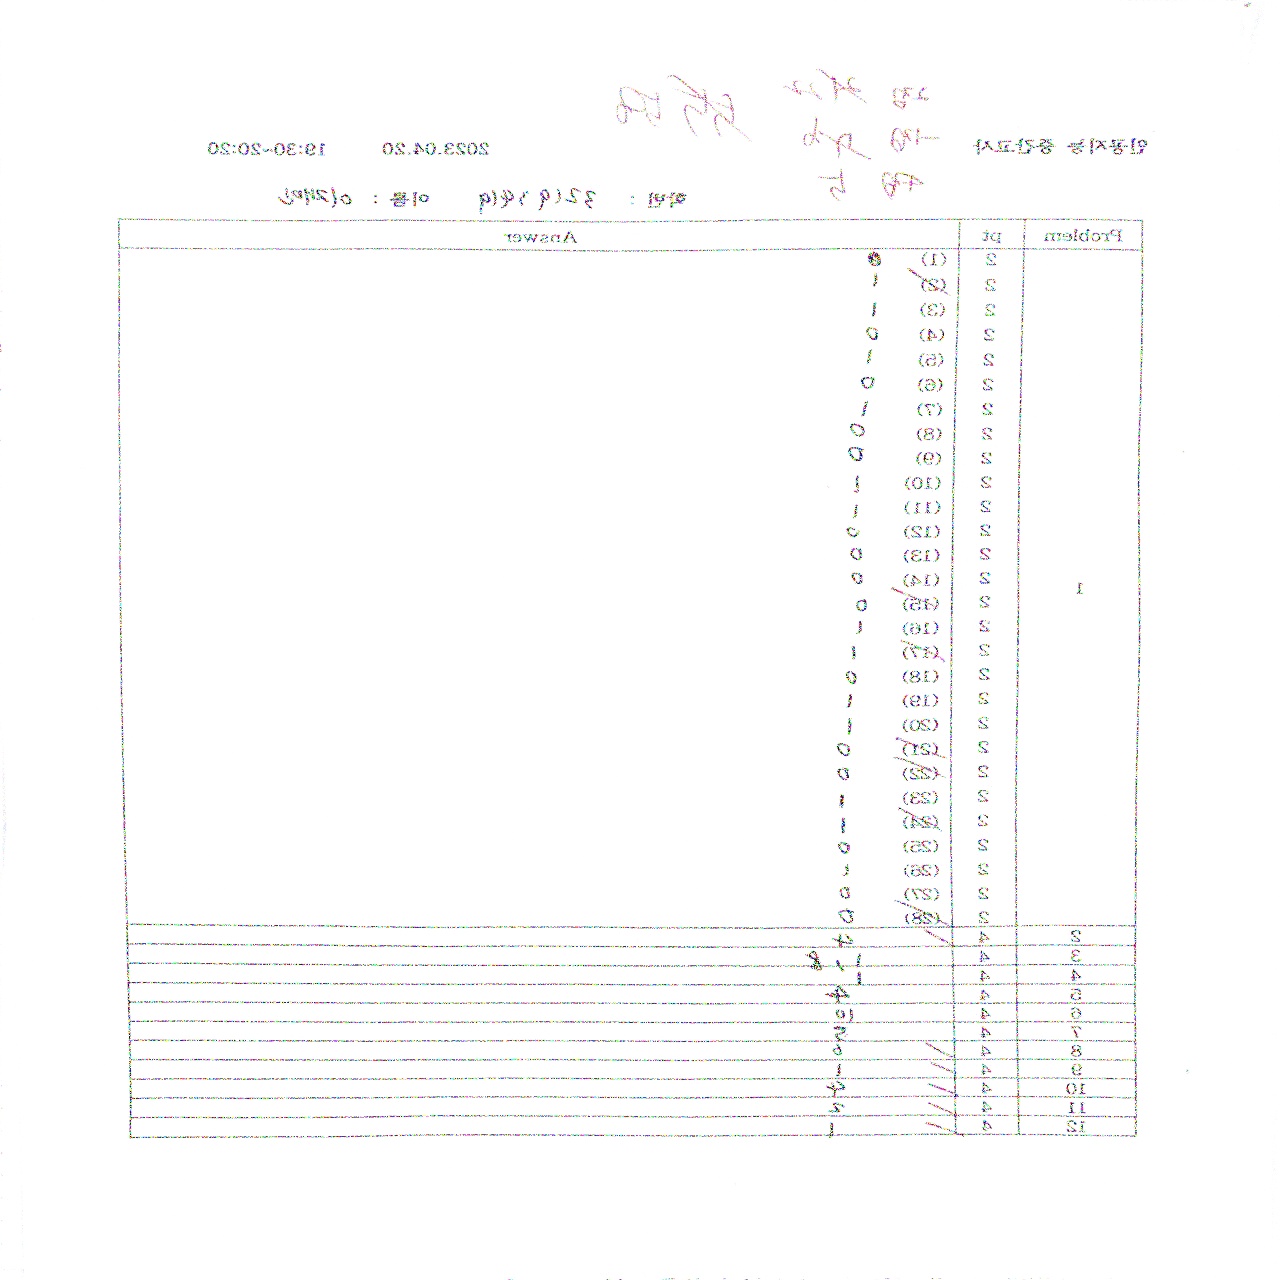 인공지능 중간고사 2023.04.20 19:30~20:20
학번 : 이름 :
Problem pt Answer
1
2 (1) 0
2 (2) 1
2 (3) 1
2 (4) 0
2 (5) 1
2 (6) 0
2 (7) 1
2 (8) 0
2 (9) 0
2 (10) 1
2 (11) 1
2 (12) 0
2 (13) 0
2 (14) 0
2 (15) 0
2 (16) 1
2 (17) 1
2 (18) 0
2 (19) 1
2 (20) 1
2 (21) 0
2 (22) 0
2 (23) 1
2 (24) 1
2 (25) 0
2 (26) 1
2 (27) 0
2 (28) 0
2 4
3 4
4 4
5 4 4
6 4
7 4
8 4
9 4 1
10 4
11 4
12 4 1